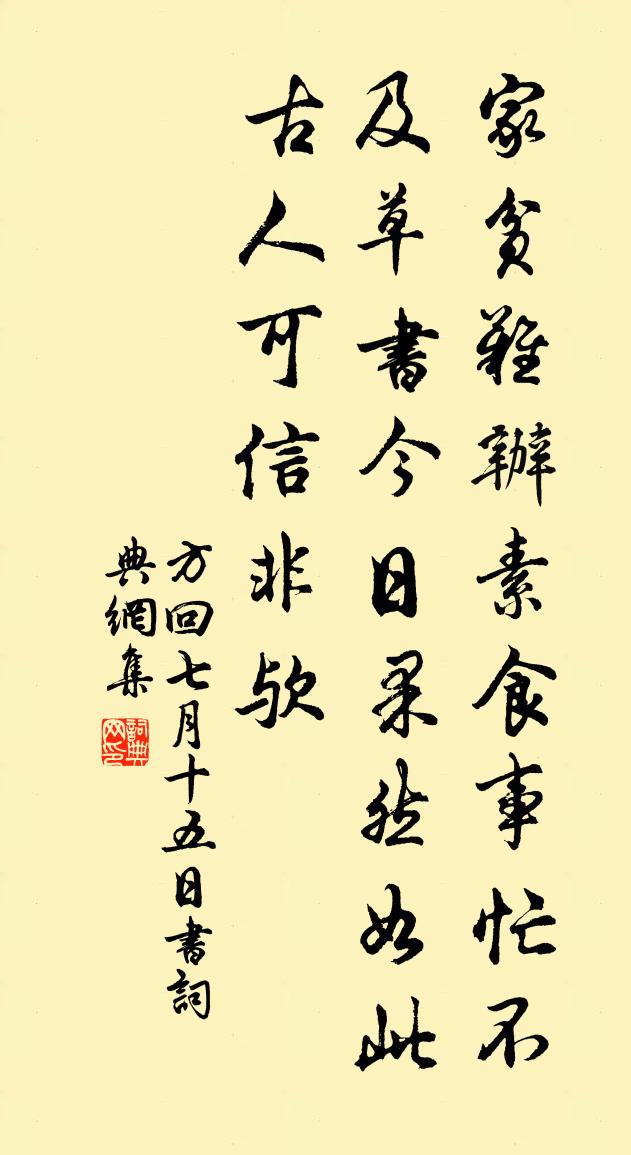 家貧難辦素食事忙不
及草書今日果然如此
古人可信非欤
方回七月十五日書詞
典網集
詞典網印